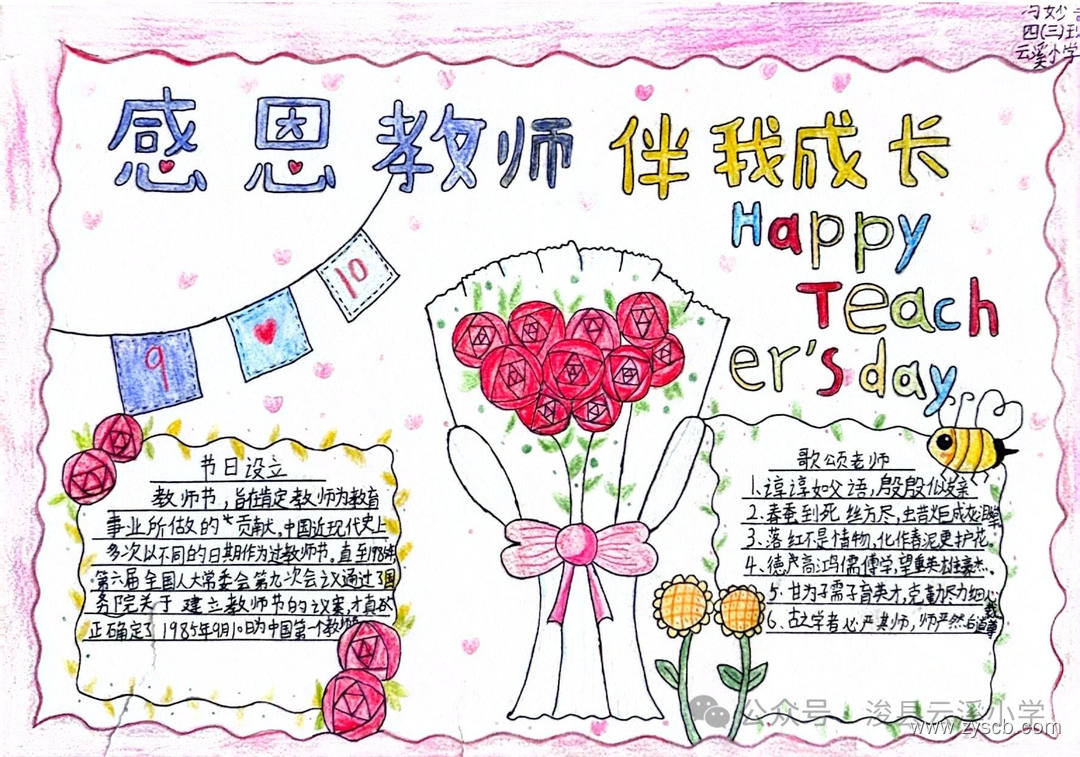 刁妙
四(三)班
云溪小学
感恩教师 伴我成长
Happy
Teach
er's day
9
10
节日设立
教师节，旨在肯定教师为教育
事业所做的贡献。中国近现代史上
多次以不同的日期作为过教师节。直至1985年
第六届全国人大常委会第九次会议通过了国
务院关于建立教师节的议案，才真
正确定了1985年9月10日为中国第一个教师
歌颂老师
1.谆谆如父语，殷殷似友亲
2.春蚕到死丝方尽，
3.落红不是情物，化作春泥更护花
4.德高鸿儒博学，望重英雄豪杰。
5.甘为孺子育英才，克勤尽力细心
6.古之学者必严其师，师严然后道尊
公众号·浚县云溪小学
www.zyscb.com